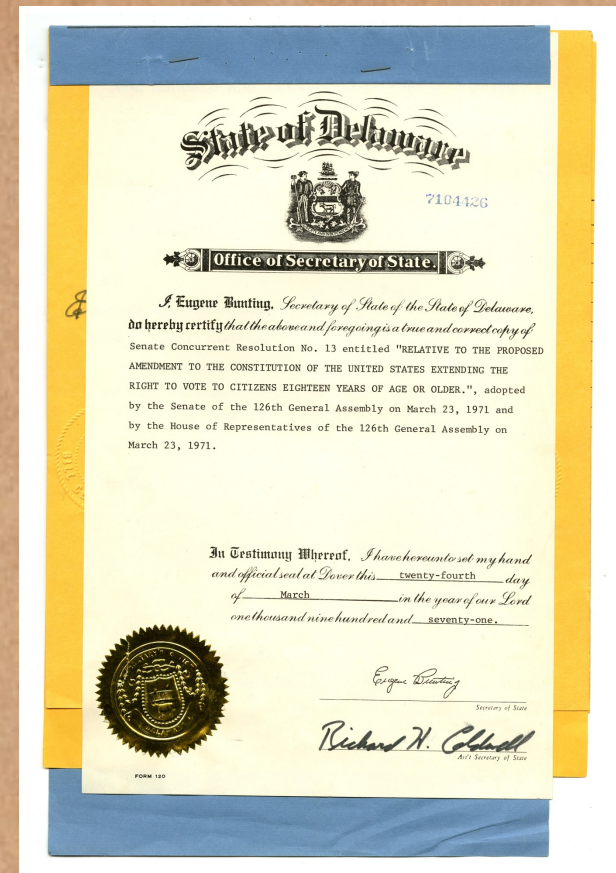 State of Delaware
7104426
Office of Secretary of State.
I, Eugene Bunting, Secretary of State of the State of Delaware,
do hereby certify that the above and foregoing is a true and correct copy of
Senate Concurrent Resolution No. 13 entitled "RELATIVE TO THE PROPOSED
AMENDMENT TO THE CONSTITUTION OF THE UNITED STATES EXTENDING THE
RIGHT TO VOTE TO CITIZENS EIGHTEEN YEARS OF AGE OR OLDER.", adopted
by the Senate of the 126th General Assembly on March 23, 1971 and
by the House of Representatives of the 126th General Assembly on
March 23, 1971.
In Testimony Whereof, I have hereunto set my hand
and official seal at Dover this twenty-fourth day
of March in the year of our Lord
one thousand nine hundred and seventy-one.
Eugene Bunting
Secretary of State
Richard H. Caldwell
Ass't Secretary of State
FORM 120